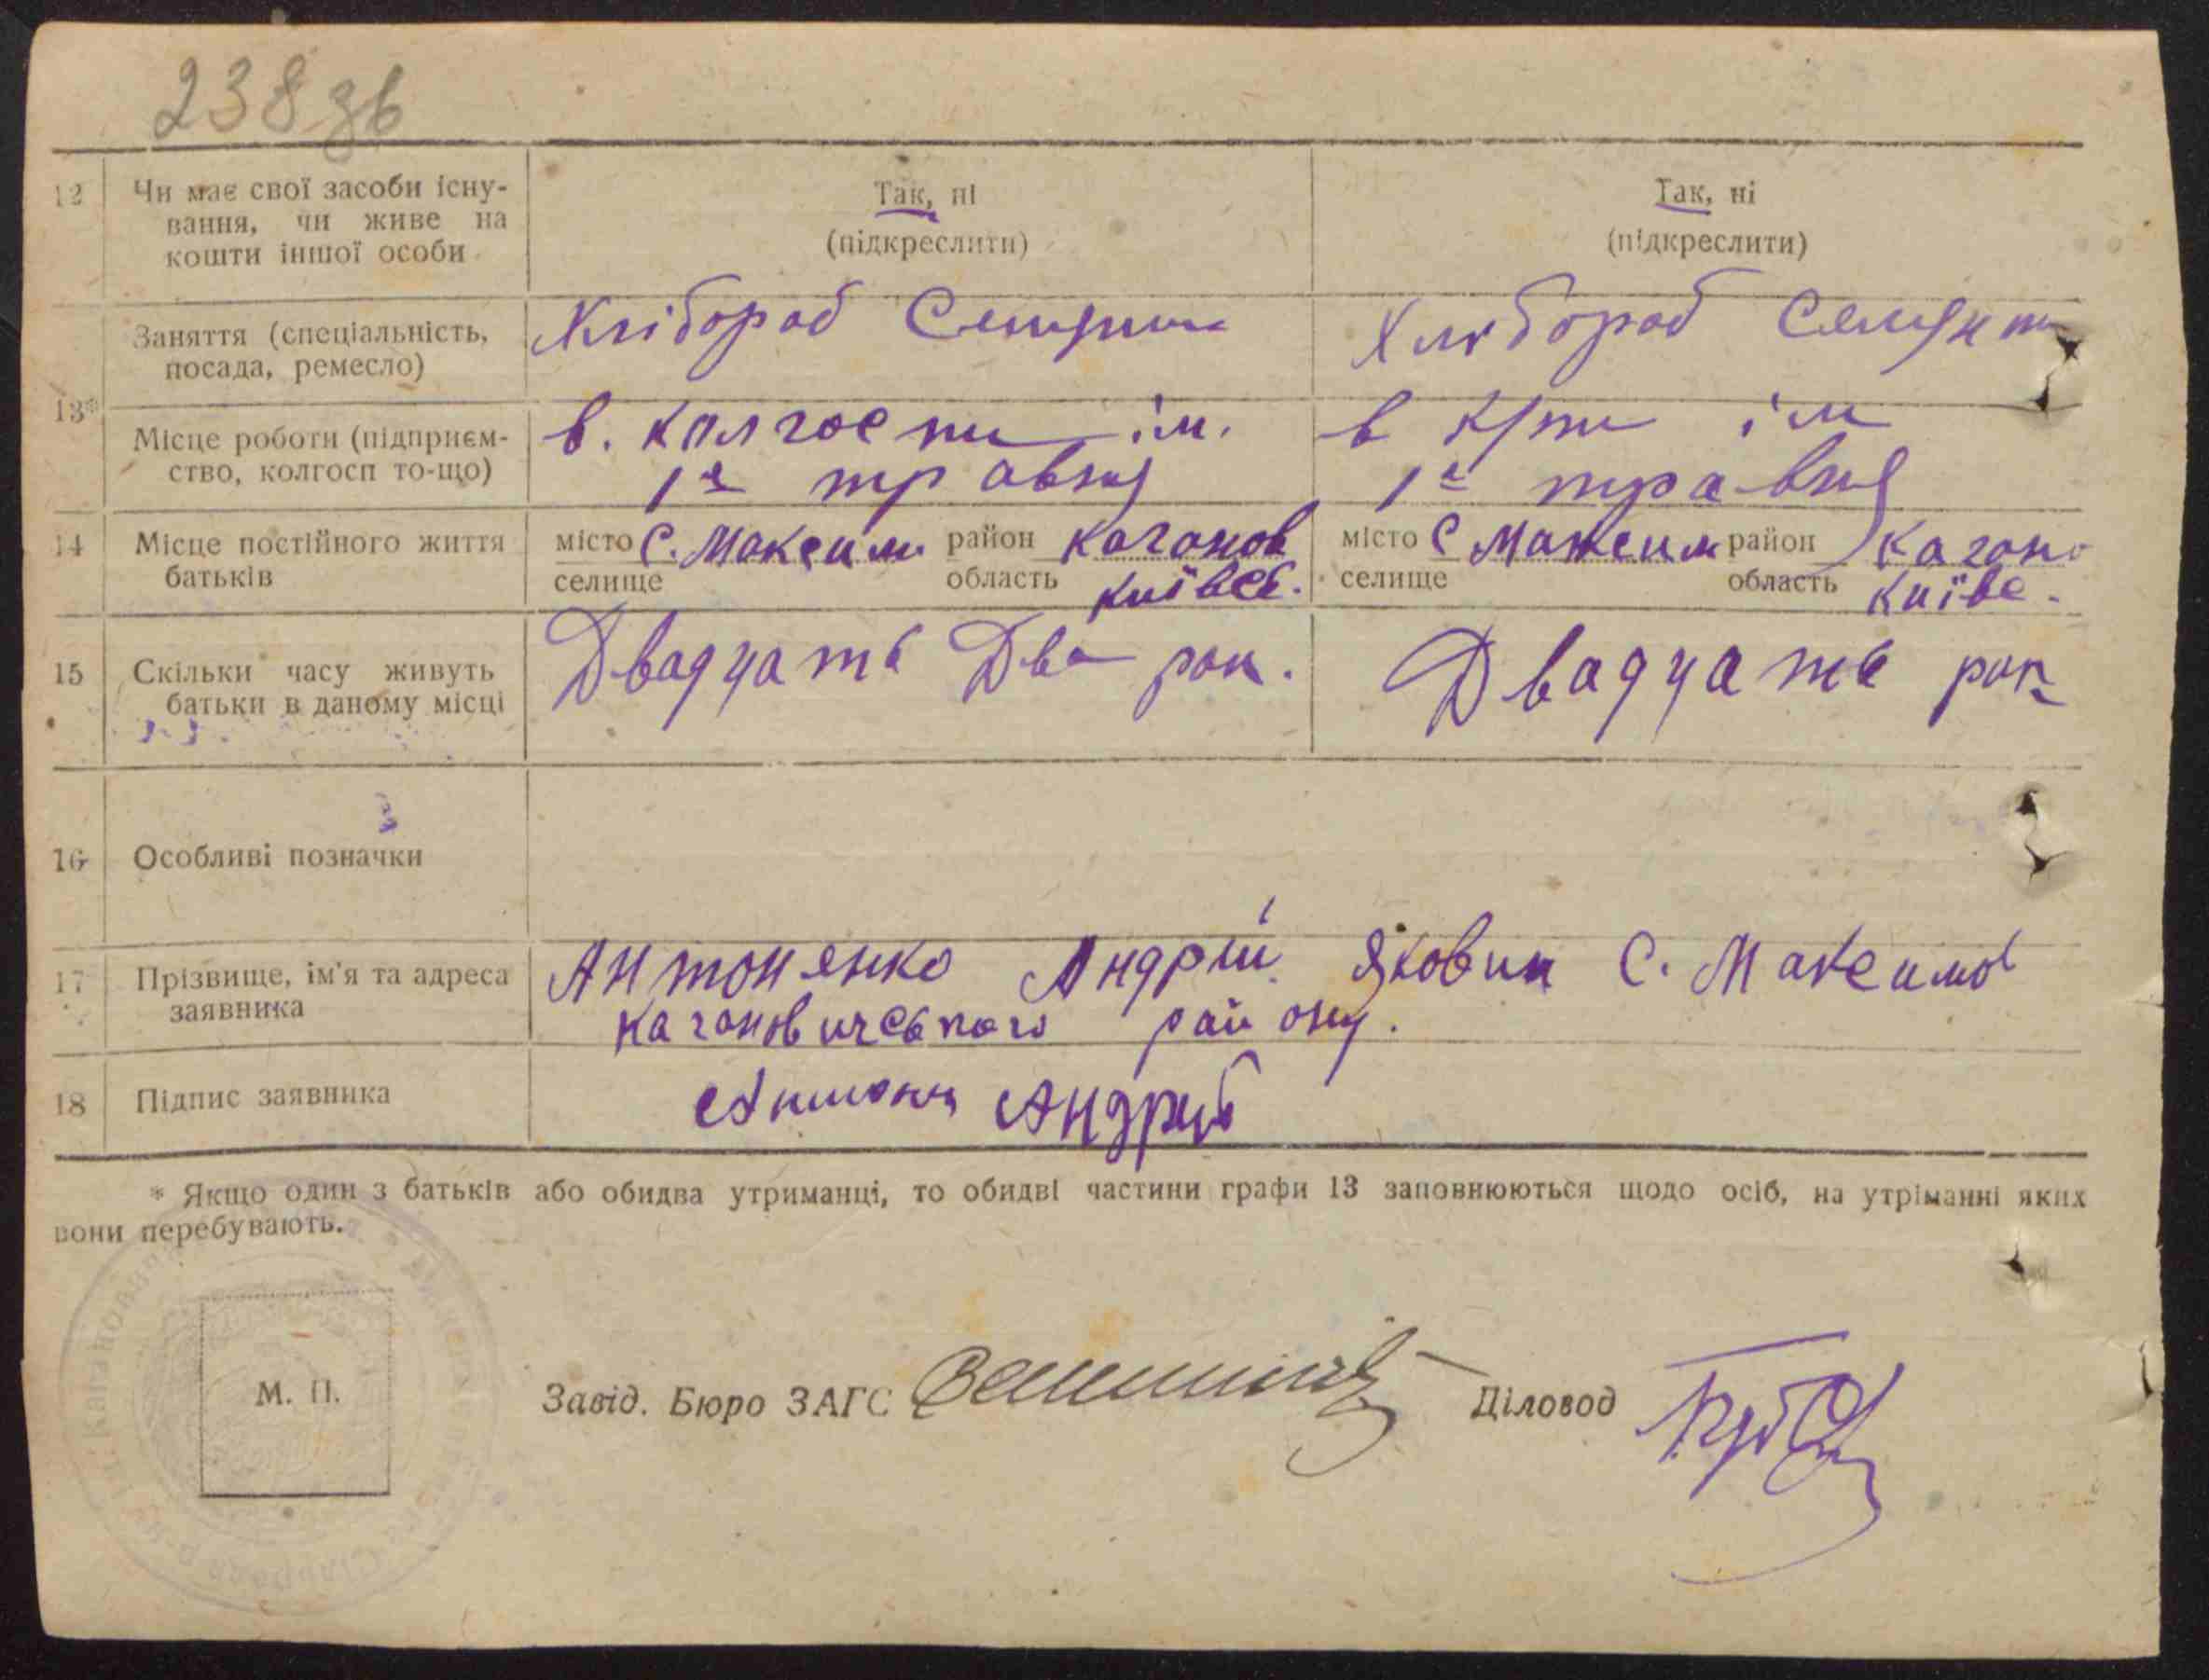 238 зв
12 Чи має свої засоби існу-
вання, чи живе на
кошти іншої особи
Так, ні
(підкреслити)
Так, ні
(підкреслити)
13*
Заняття (спеціальність,
посада, ремесло)
Хлібороб
Хлібороб
Місце роботи (підприєм-
ство, колгосп то-що)
в. колгоспи ім.
1е травня
в ім
1е травня
14 Місце постійного життя
батьків
місто с. Максим район Каганов
селище область Київсь.
місто с Максим район Кагано
селище область Київс.
15 Скільки часу живуть
батьки в даному місці
Двадцать Два рок.
Двадцать рок
16 Особливі позначки
17 Прізвище, ім'я та адреса
заявника
Антоненко Андрій Якович С. Максимов
Кагановичського району.
18 Підпис заявника
Андрій
* Якщо один з батьків або обидва утриманці, то обидві частини графи 13 заповнюються щодо осіб, на утріманні яких
вони перебувають.
М. П.
Завід. Бюро ЗАГС
Діловод